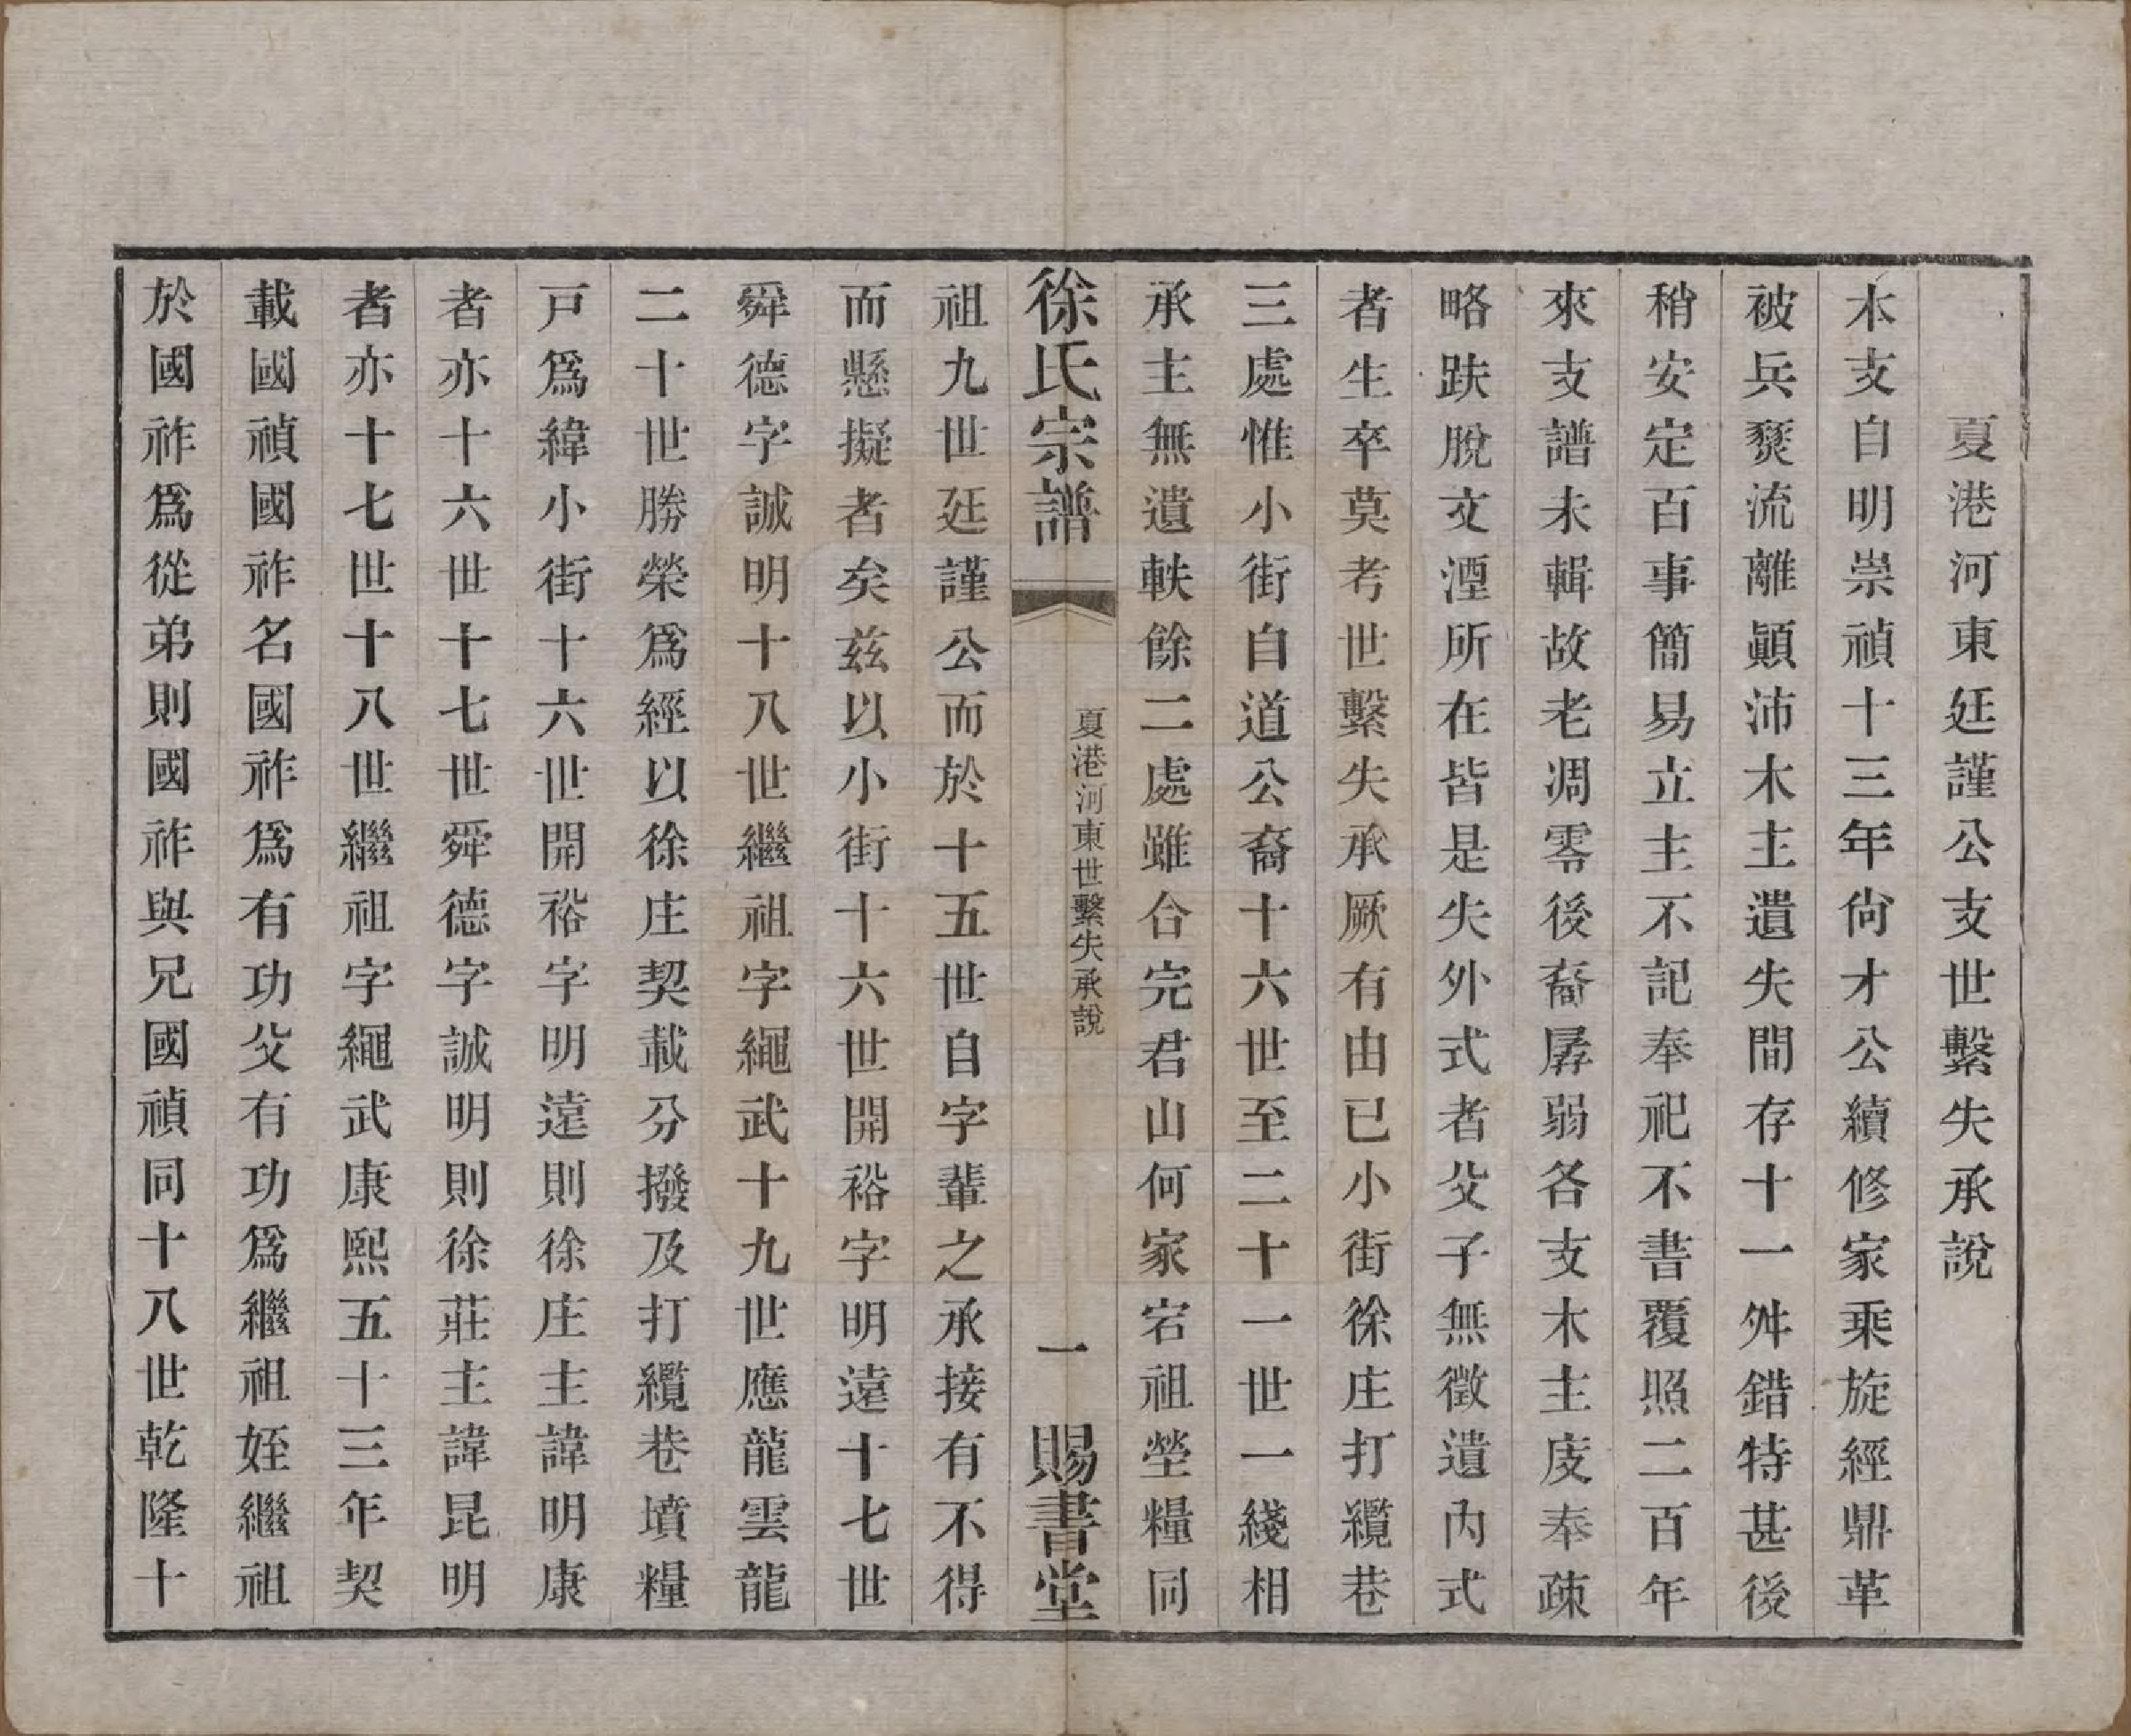 夏港河東廷謹公支世繫失承說
本支自明崇禎十三年尙才公續修家乘旋經鼎革
被兵燹流離顚沛木主遺失間存十一舛錯特甚後
稍安定百事簡易立主不記奉祀不書覆照二百年
來支譜未輯故老凋零後裔孱弱各支木主庋奉疎
略趺脫文湮所在皆是失外式者父子無徵遺內式
者生卒莫考世繫失承厥有由已小街徐庄打纜巷
三處惟小街自道公裔十六世至二十一世一綫相
承主無遺軼餘二處雖合完君山何家宕祖塋糧同
徐氏宗譜
夏港河東世繫失承說
一
賜書堂
祖九世廷謹公而於十五世自字輩之承接有不得
而懸擬者矣茲以小街十六世開裕字明遠十七世
舜德字誠明十八世繼祖字繩武十九世應龍雲龍
二十世勝榮爲經以徐庄契載分撥及打纜巷墳糧
戸爲緯小街十六世開裕字明遠則徐庄主諱明康
者亦十六世十七世舜德字誠明則徐莊主諱昆明
者亦十七世十八世繼祖字繩武康熙五十三年契
載國禎國祚名國祚爲有功父有功爲繼祖姪繼祖
於國祚爲從弟則國祚與兄國禎同十八世乾隆十